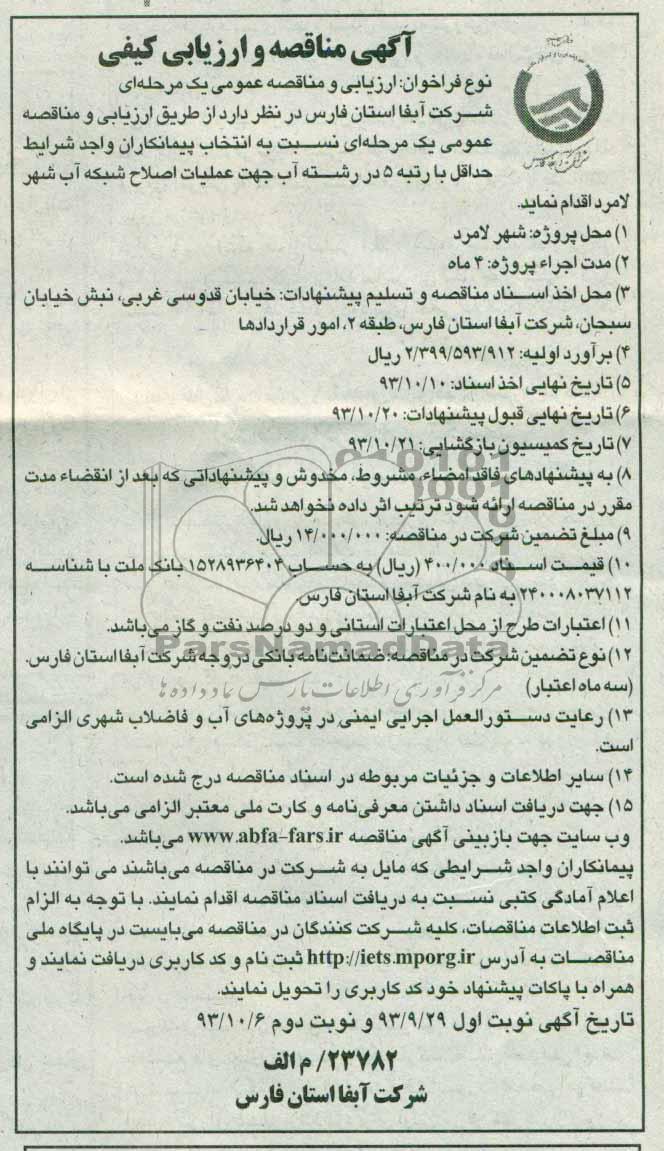 آگهی مناقصه و ارزیابی کیفی
نوع فراخوان: ارزیابی و مناقصه عمومی یک مرحله‌ای
شرکت آبفا استان فارس در نظر دارد از طریق ارزیابی و مناقصه
عمومی یک مرحله‌ای نسبت به انتخاب پیمانکاران واجد شرایط
حداقل با رتبه ۵ در رشته آب جهت عملیات اصلاح شبکه آب شهر
لامرد اقدام نماید.
۱) محل پروژه: شهر لامرد
۲) مدت اجراء پروژه: ۴ ماه
۳) محل اخذ اسناد مناقصه و تسلیم پیشنهادات: خیابان قدوسی غربی، نبش خیابان
سبحان، شرکت آبفا استان فارس، طبقه ۲، امور قراردادها
۴) برآورد اولیه: ۲/۳۹۹/۵۹۳/۹۱۲ ریال
۵) تاریخ نهایی اخذ اسناد: ۹۳/۱۰/۱۰
۶) تاریخ نهایی قبول پیشنهادات: ۹۳/۱۰/۲۰
۷) تاریخ کمیسیون بازگشایی: ۹۳/۱۰/۲۱
۸) به پیشنهادهای فاقد امضاء، مشروط، مخدوش و پیشنهاداتی که بعد از انقضاء مدت
مقرر در مناقصه ارائه شود ترتیب اثر داده نخواهد شد.
۹) مبلغ تضمین شرکت در مناقصه: ۱۴/۰۰۰/۰۰۰ ریال.
۱۰) قیمت اسناد ۴۰۰/۰۰۰ (ریال) به حساب ۱۵۲۸۹۳۶۴۰۴ بانک ملت با شناسه
۲۴۰۰۰۸۰۳۷۱۱۲ به نام شرکت آبفا استان فارس.
۱۱) اعتبارات طرح از محل اعتبارات استانی و دو درصد نفت و گاز می‌باشد.
ParsNamadData
۱۲) نوع تضمین شرکت در مناقصه: ضمانت‌نامه بانکی در وجه شرکت آبفا استان فارس.
(سه ماه اعتبار)
مرکز فرآوری اطلاعات پارس نماد داده‌ها
۱۳) رعایت دستورالعمل اجرایی ایمنی در پروژه‌های آب و فاضلاب شهری الزامی
است.
۱۴) سایر اطلاعات و جزئیات مربوطه در اسناد مناقصه درج شده است.
۱۵) جهت دریافت اسناد داشتن معرفی‌نامه و کارت ملی معتبر الزامی می‌باشد.
وب سایت جهت بازبینی آگهی مناقصه www.abfa-fars.ir می‌باشد.
پیمانکاران واجد شرایطی که مایل به شرکت در مناقصه می‌باشند می توانند با
اعلام آمادگی کتبی نسبت به دریافت اسناد مناقصه اقدام نمایند. با توجه به الزام
ثبت اطلاعات مناقصات، کلیه شرکت کنندگان در مناقصه می‌بایست در پایگاه ملی
مناقصات به آدرس http://iets.mporg.ir ثبت نام و کد کاربری دریافت نمایند و
همراه با پاکات پیشنهاد خود کد کاربری را تحویل نمایند.
تاریخ آگهی نوبت اول ۹۳/۹/۲۹ و نوبت دوم ۹۳/۱۰/۶
۲۳۷۸۲/ م الف
شرکت آبفا استان فارس